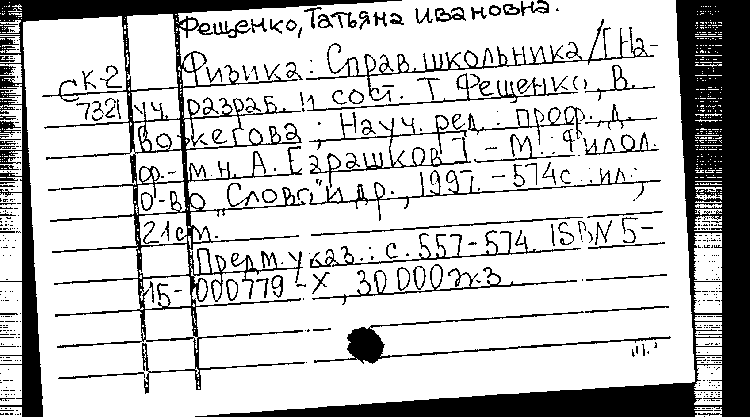 Фещенко, Татьяна Ивановна.
СК-2 Физика: Справ. школьника / [На-
7321 уч. разраб. и сост. Т. Фещенко, В.
Вожегова; Науч. ред.: проф., д.
ф.-м.н. А. Гграшков]. - М.: Филол.
о-во „Слово" и др., 1997. - 574с.: ил.;
21см.
Предм. указ.: с. 557-574. ISBN 5-
15-000779-X, 30 000экз.